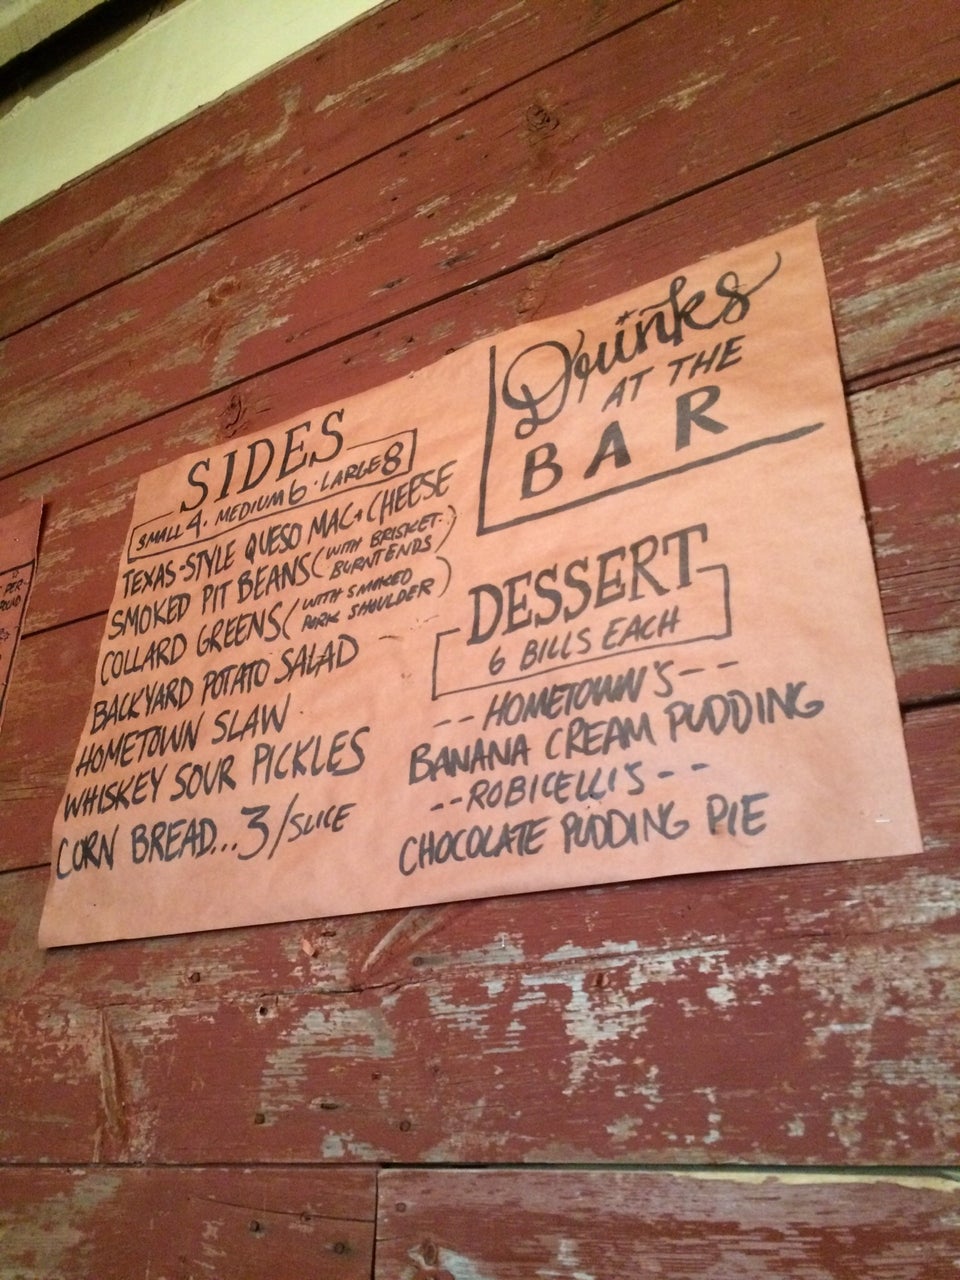 SIDES
SMALL 4 · MEDIUM 6 · LARGE 8
TEXAS-STYLE QUESO MAC + CHEESE
SMOKED PIT BEANS (WITH BRISKET BURNT ENDS)
COLLARD GREENS (WITH SMOKED PORK SHOULDER)
BACKYARD POTATO SALAD
HOMETOWN SLAW
WHISKEY SOUR PICKLES
CORN BREAD...3/SLICE
Drinks
AT THE
BAR
DESSERT
6 BILLS EACH
--HOMETOWN'S--
BANANA CREAM PUDDING
--ROBICELLI'S--
CHOCOLATE PUDDING PIE
PER